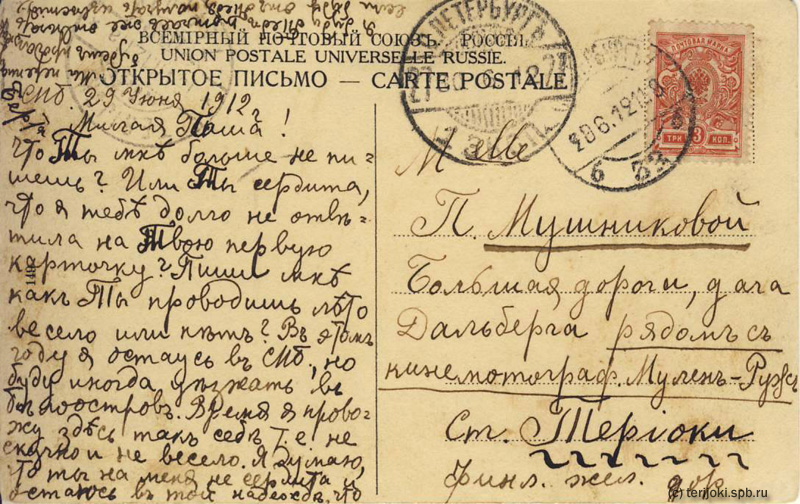 ВСЕМІРНЫЙ ПОЧТОВЫЙ СОЮЗЪ. РОССІЯ.
UNION POSTALE UNIVERSELLE RUSSIE.
ОТКРЫТОЕ ПИСЬМО — CARTE POSTALE
СПБ 29 Июня 1912 г.
Милая Паша!
Что Ты мнѣ больше не пи-
шешь? Или Ты сердита,
что я тебѣ долго не отвѣ-
тила на Твою первую
карточку? Пиши мнѣ
какъ Ты проводишь лѣто
весело или нѣтъ? Въ этомъ
году я остаюсь въ СПБ, но
буду иногда ѣзжать въ
Бѣлоостровъ. Время я прово-
жу здѣсь такъ себѣ т.е. не
скучно и не весело. Я думаю,
что ты на меня не сердита и
остаюсь въ той надеждѣ, что
ПОЧТОВАЯ МАРКА
3
ТРИ КОП.
28 6 12
M elle
П. Мушниковой
Большая дорога, дача
Дальберга рядомъ съ
кинемотограф. Муленъ-Ружъ
Ст. Теріоки
Финл. жел. дор.
(c) terijoki.spb.ru